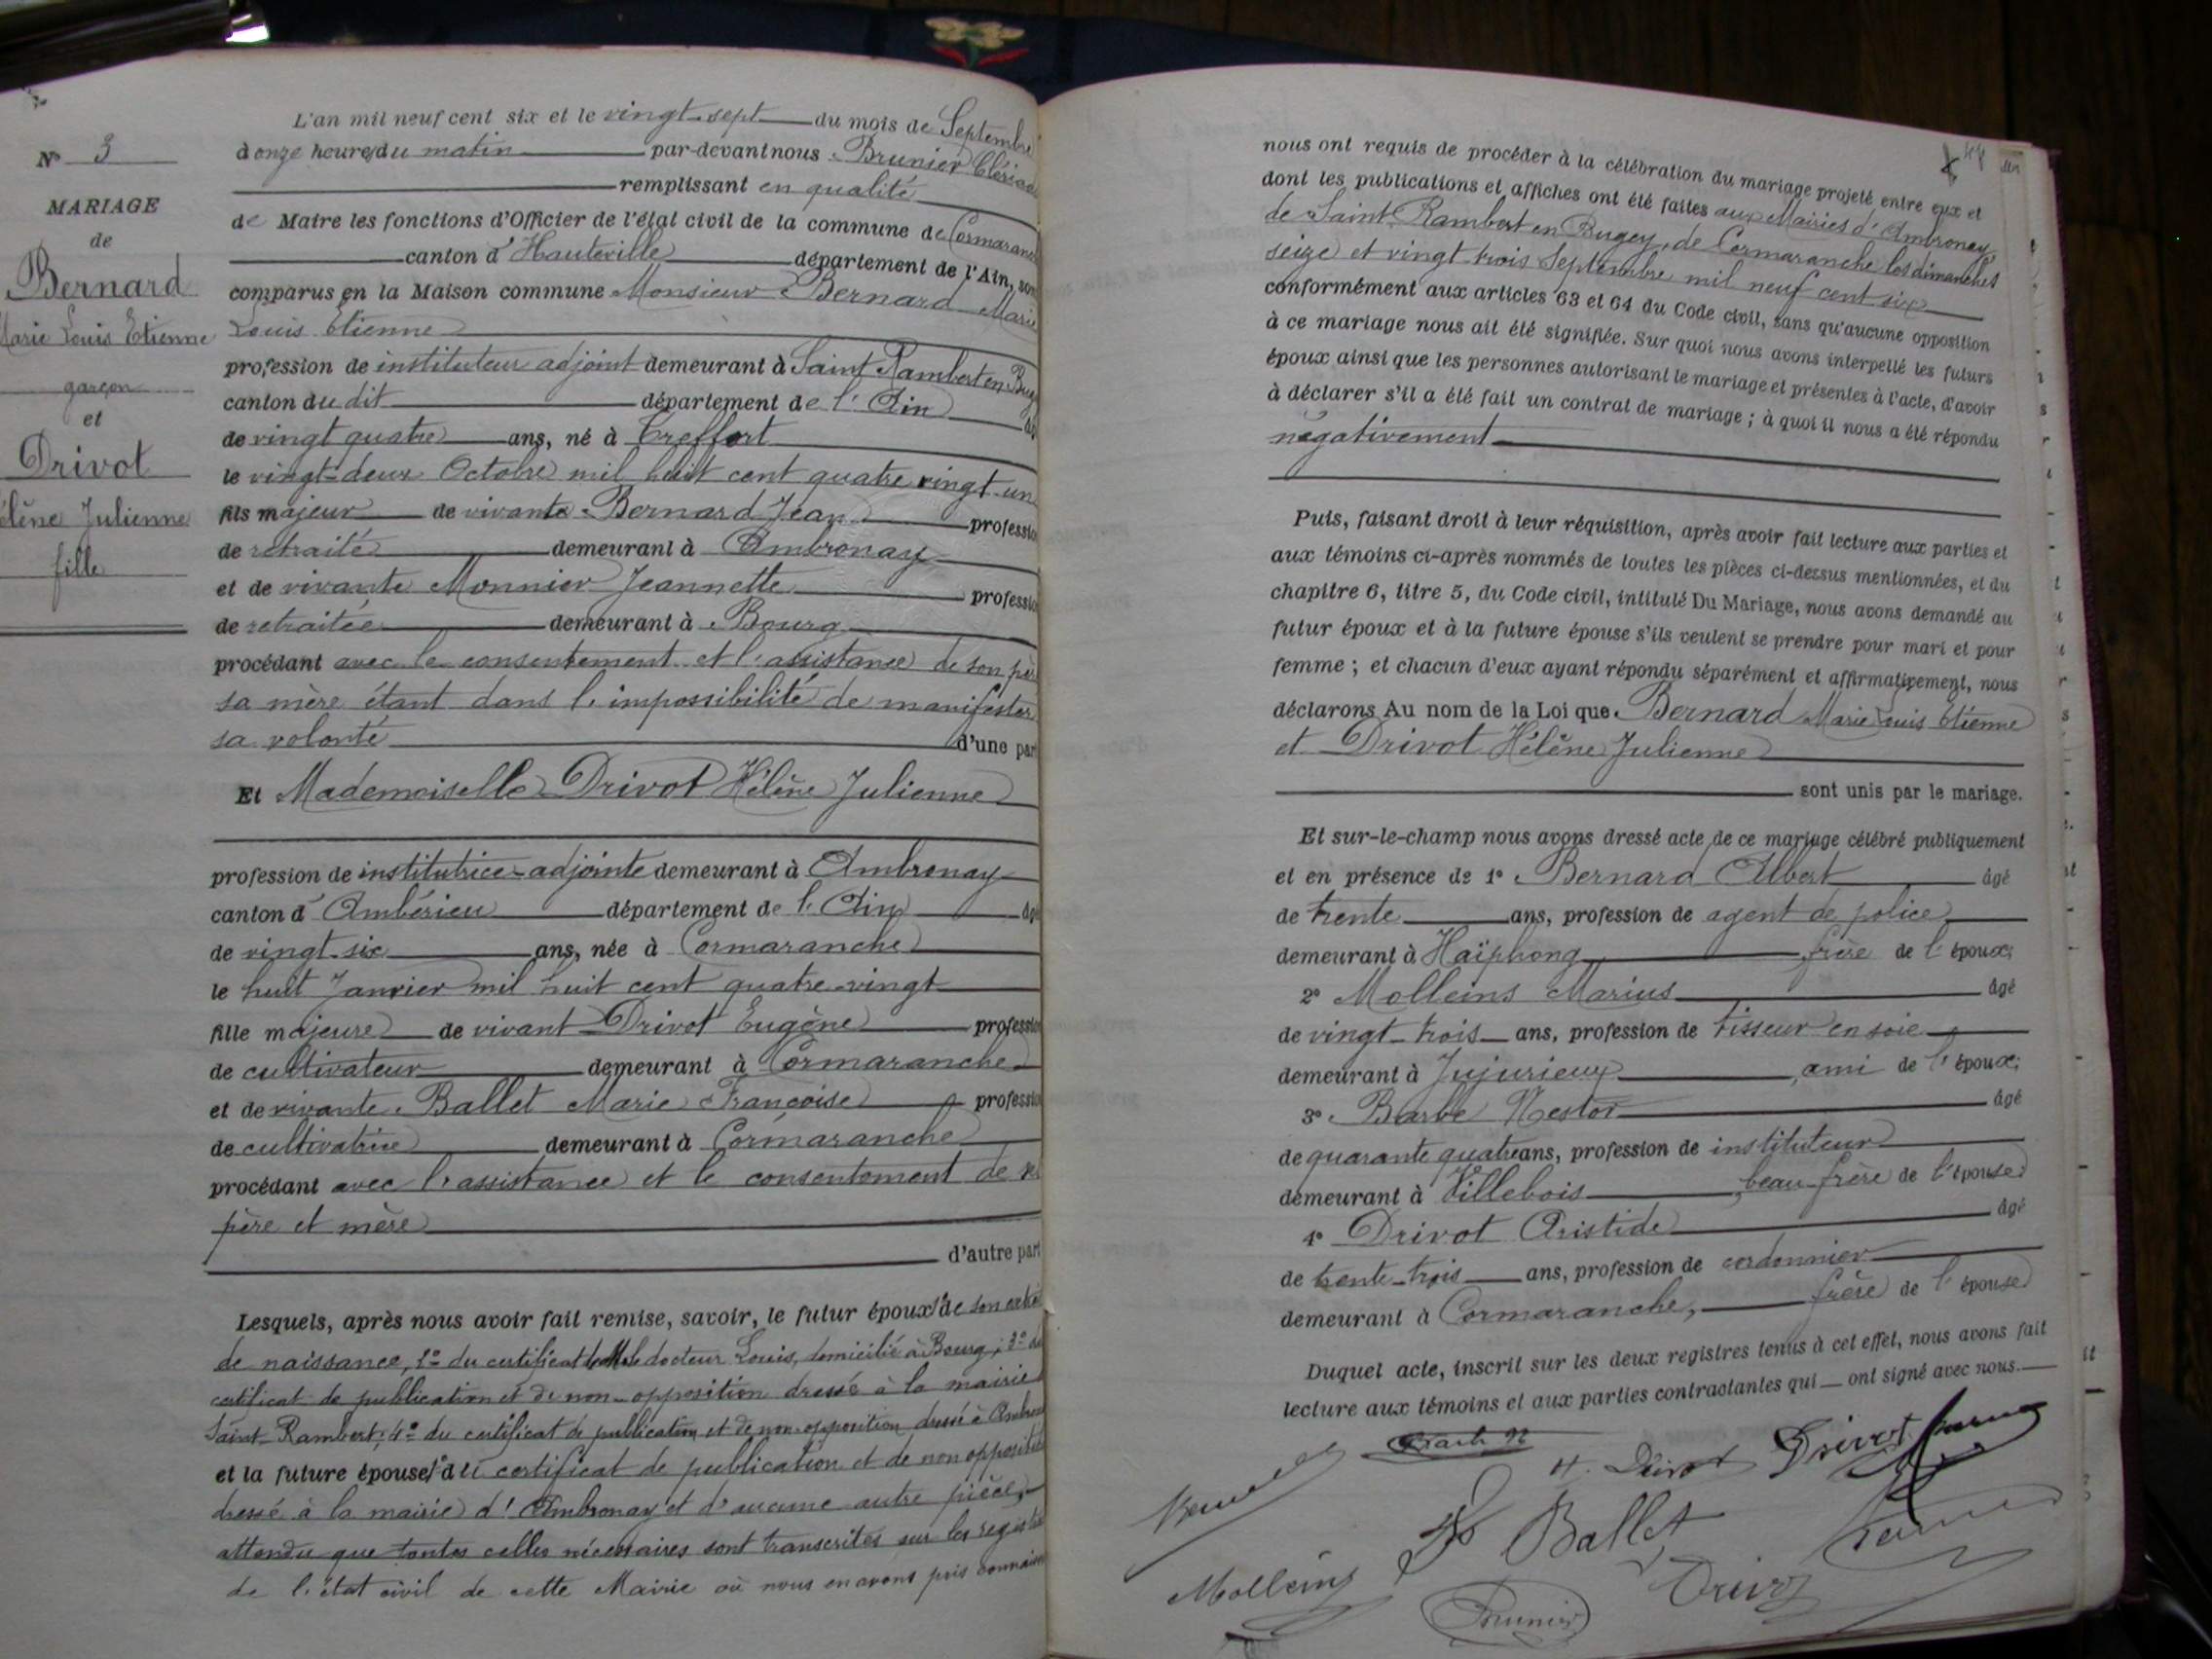 N° 3
MARIAGE
de
Bernard
Marie Louis Etienne
garçon
et
Drivot
Hélène Julienne
fille
L'an mil neuf cent six et le vingt-sept du mois de Septembre
à onze heures du matin par-devant nous Brunier Clériac
remplissant en qualité
de Maire les fonctions d'Officier de l'état civil de la commune de Cormaranche
canton d'Hauteville département de l'Ain, sont
comparus en la Maison commune Monsieur Bernard Marie
Louis Etienne
profession de instituteur adjoint demeurant à Saint Rambert en Bugey
canton du dit département de l'Ain âgé
de vingt quatre ans, né à Treffort
le vingt-deux Octobre mil huit cent quatre vingt-un
fils majeur de vivants Bernard Jean profession
de retraité demeurant à Ambronay
et de vivante Monnier Jeannette profession
de retraitée demeurant à Bourg
procédant avec le consentement et l'assistance de son père
sa mère étant dans l'impossibilité de manifester
sa volonté d'une part
Et Mademoiselle Drivot Hélène Julienne
profession de institutrice-adjointe demeurant à Ambronay
canton d'Ambérieu département de l'Ain âgé
de vingt-six ans, née à Cormaranche
le huit Janvier mil huit cent quatre-vingt
fille majeure de vivant Drivot Eugène profession
de cultivateur demeurant à Cormaranche
et de vivante Ballet Marie Françoise profession
de cultivatrice demeurant à Cormaranche
procédant avec l'assistance et le consentement de ses
père et mère
d'autre part
Lesquels, après nous avoir fait remise, savoir, le futur époux 1° de son extrait
de naissance, 2° du certificat de M. le docteur Louis, domicilié à Bourg; 3° du
certificat de publication et de non-opposition dressé à la mairie de
Saint-Rambert; 4° du certificat de publication et de non-opposition dressé à Ambronay
et la future épouse 1° du certificat de publication et de non opposition
dressé à la mairie d'Ambronay et d'aucune autre pièce,
attendu que toutes celles nécessaires sont transcrites sur les registres
de l'état civil de cette Mairie où nous en avons pris connaissance
48
nous ont requis de procéder à la célébration du mariage projeté entre eux et
dont les publications et affiches ont été faites aux Mairies d'Ambronay,
de Saint-Rambert en Bugey, de Cormaranche les dimanches
seize et vingt-trois Septembre mil neuf cent six
conformément aux articles 63 et 64 du Code civil, sans qu'aucune opposition
à ce mariage nous ait été signifiée. Sur quoi nous avons interpellé les futurs
époux ainsi que les personnes autorisant le mariage et présentes à l'acte, d'avoir
à déclarer s'il a été fait un contrat de mariage ; à quoi il nous a été répondu
négativement
Puis, faisant droit à leur réquisition, après avoir fait lecture aux parties et
aux témoins ci-après nommés de toutes les pièces ci-dessus mentionnées, et du
chapitre 6, titre 5, du Code civil, intitulé Du Mariage, nous avons demandé au
futur époux et à la future épouse s'ils veulent se prendre pour mari et pour
femme ; et chacun d'eux ayant répondu séparément et affirmativement, nous
déclarons Au nom de la Loi que Bernard Marie Louis Etienne
et Drivot Hélène Julienne
sont unis par le mariage.
Et sur-le-champ nous avons dressé acte de ce mariage célébré publiquement
et en présence de 1° Bernard Albert âgé
de trente ans, profession de agent de police
demeurant à Haïphong frère de l'époux;
2° Molleins Marius âgé
de vingt-trois ans, profession de tisseur en soie
demeurant à Jujurieux, ami de l'époux;
3° Barbe Nestor âgé
de quarante quatre ans, profession de instituteur
demeurant à Villebois, beau-frère de l'épouse
4° Drivot Aristide âgé
de trente-trois ans, profession de cordonnier
demeurant à Cormaranche, frère de l'épouse
Duquel acte, inscrit sur les deux registres tenus à cet effet, nous avons fait
lecture aux témoins et aux parties contractantes qui ont signé avec nous.
H. Drivot Drivot
Ballet
Molleins
Brunier
Drivot